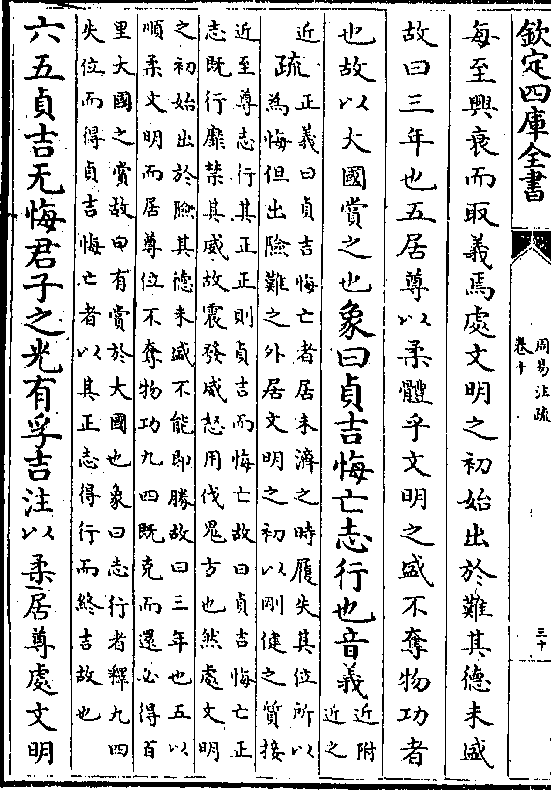 欽定四庫全書
周易注疏
卷十
三十
每至興衰而取義焉處文明之初始出於難其德未盛
故曰三年也五居尊以柔體乎文明之盛不奪物功者
也故以大國賞之也象曰貞吉悔亡志行也音義近附
近之
近
疏正義曰貞吉悔亡者居未濟之時履失其位所以
為悔但出險難之外居文明之初以剛健之質接
近至尊志行其正正則貞吉而悔亡故曰貞吉悔亡正
志既行靡禁其威故震發威怒用伐鬼方也然處文明
之初始出於險其德未盛不能即勝故曰三年也五以
順柔文明而居尊位不奪物功九四既克而還必得百
里大國之賞故曰有賞於大國也象曰志行者釋九四
失位而得貞吉悔亡者以其正志得行而終吉故也
六五貞吉无悔君子之光有孚吉注以柔居尊處文明